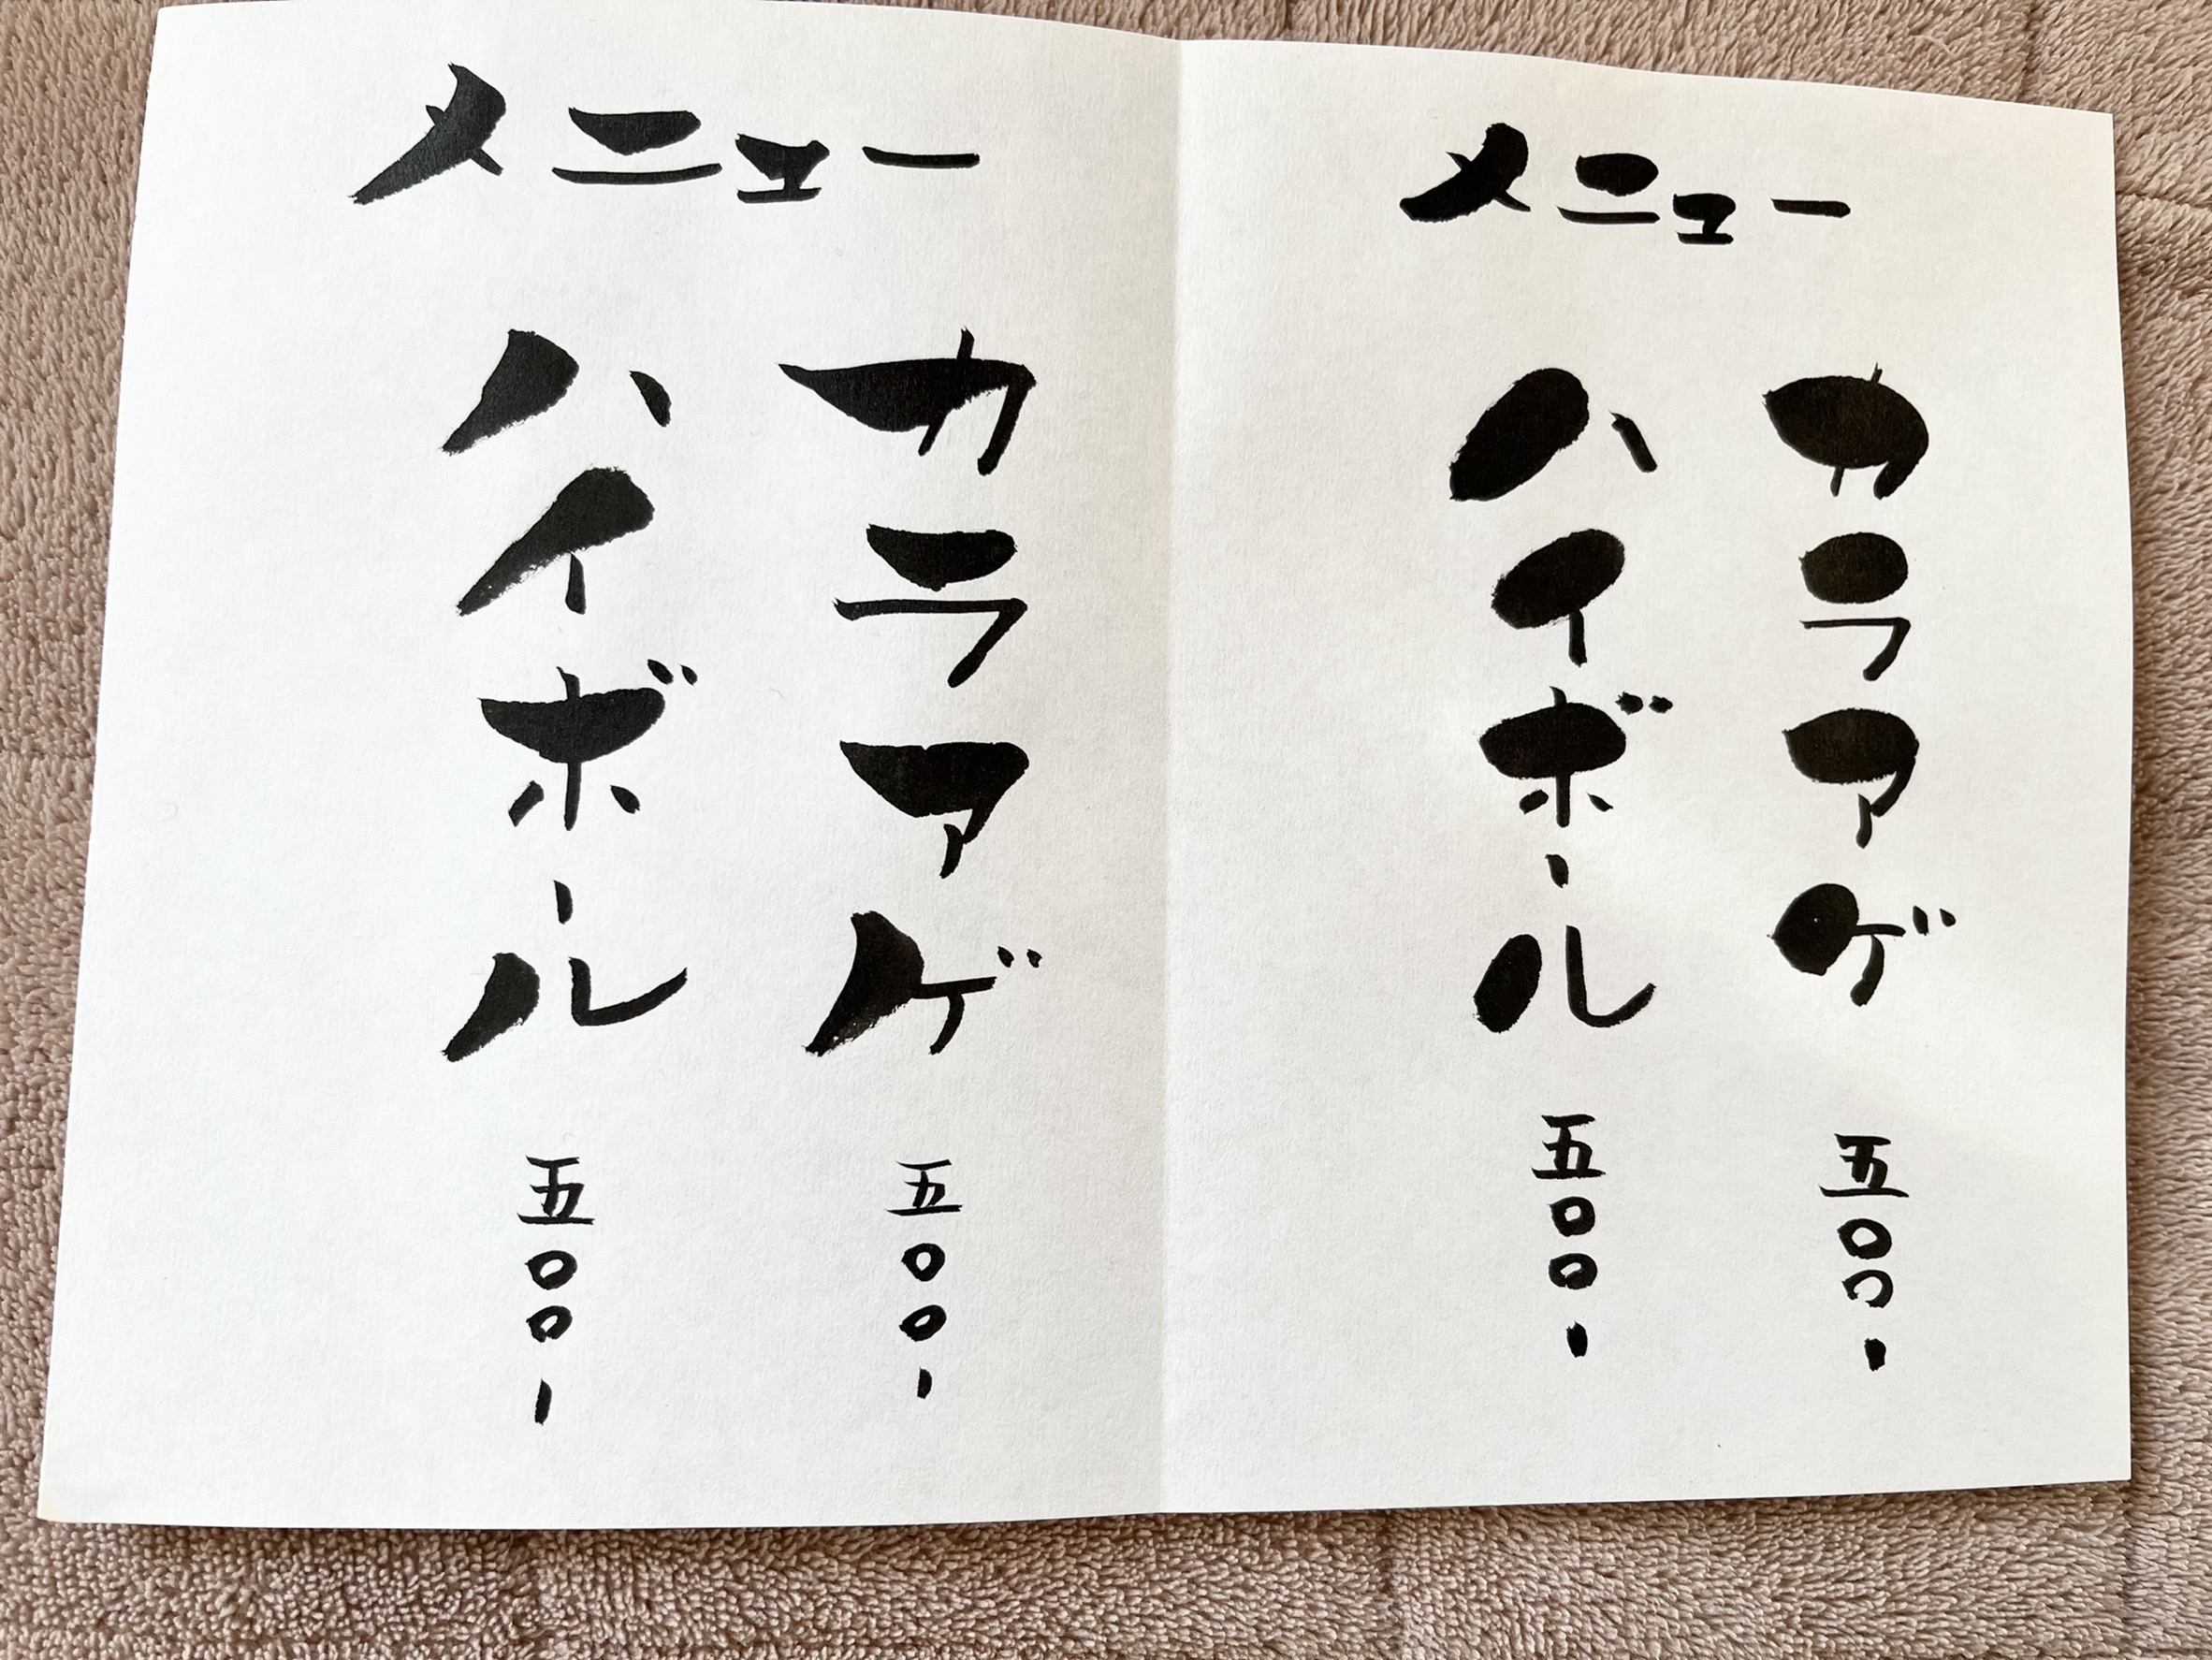 メニュー
カラアゲ 五〇〇ー
ハイボール 五〇〇ー
メニュー
カラアゲ 五〇〇ー
ハイボール 五〇〇ー